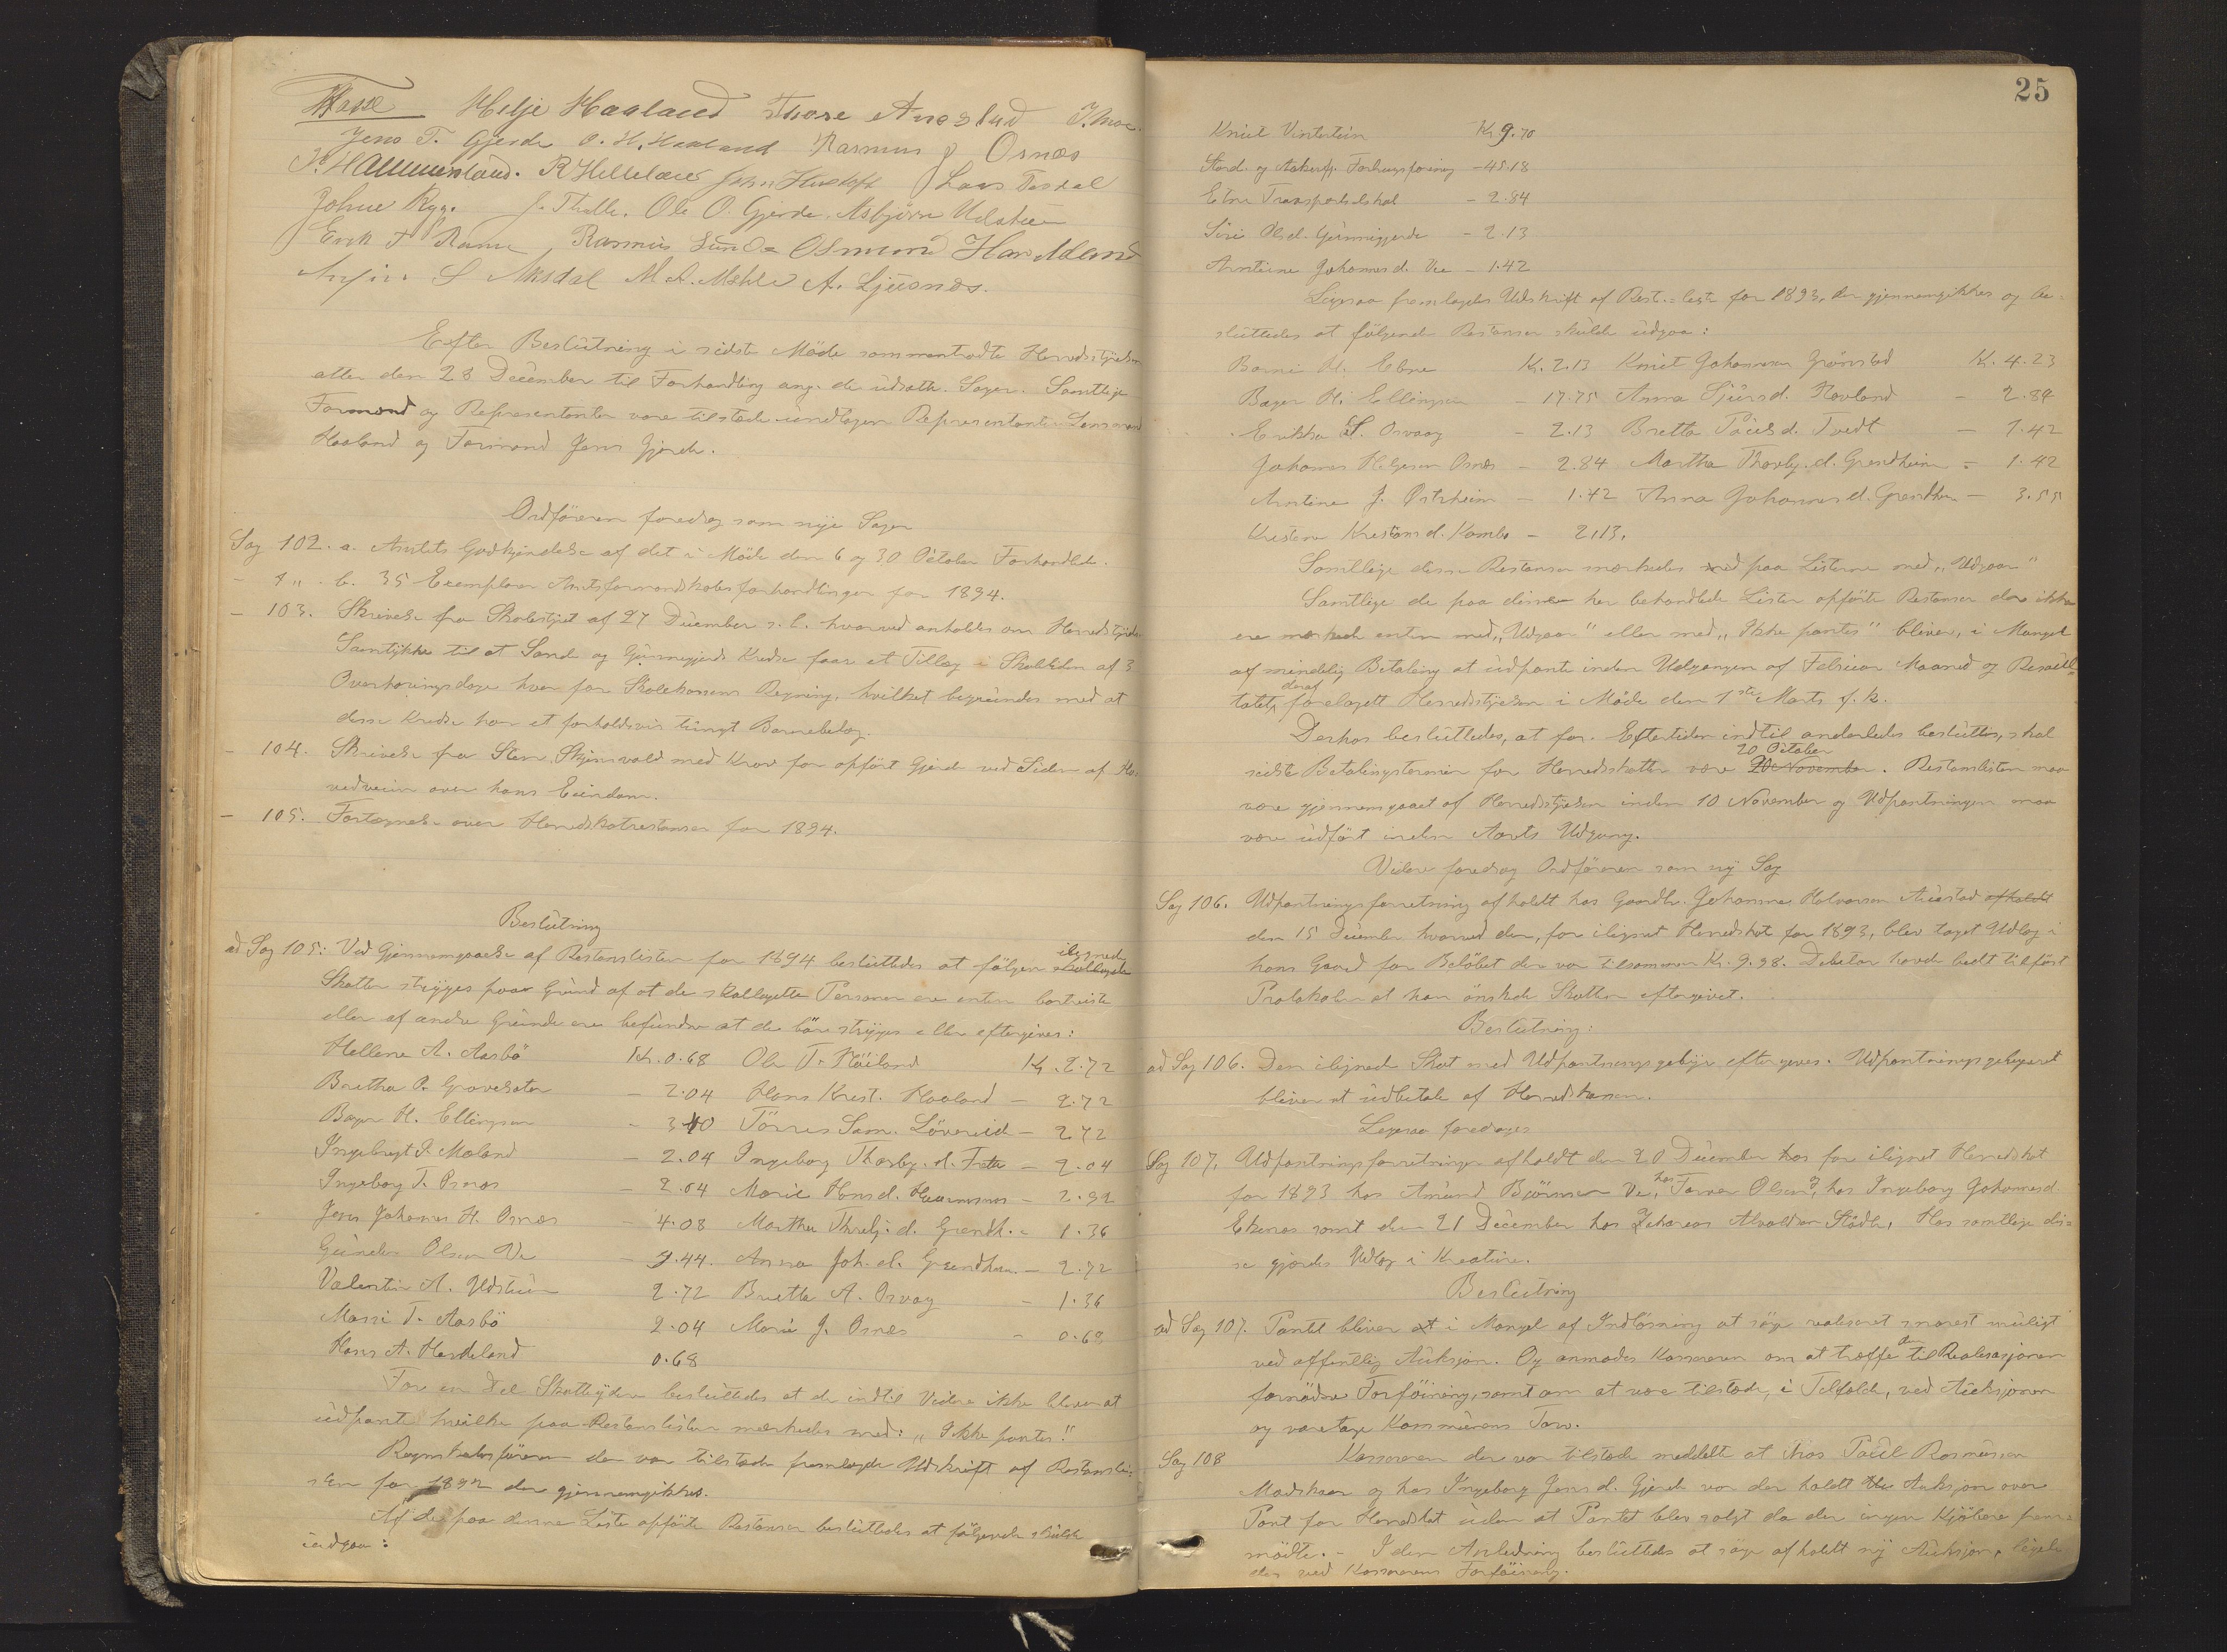 Helje Haaland Thore Auestad
Jens T. Gjerde O. H. Haaland Rasmus J Osnes
Hammersland. R Helleland Lars Tesdal
Johne Ryg. J. Tholle. Ole O. Gjerde. Asbjørn Udsteen
Erik T Ramn Rasmus Sunde Osmund Hardeland
S Aksdal M A. Mæhle A. Ljusnes.
Efter Beslutning i sidste Møde sammentraadte Herredsstyrelsen
atter den 28 December til Forhandling ang. de udsatte Sager. Samtlige
Formænd og Repræsentanter vare tilstede undtagen Repræsentanten Lensmand
Haaland og Formand Jens Gjerde.
Ordføreren foredrog som nye Sager
Sag 102. a. Amtets Godkjendelse af det i Møde den 6 og 30 October Forhandlede.
- " - b. 35 Exemplarer Amtsformandskabsforhandlinger for 1894.
- 103. Skrivelse fra Skolestyret af 27 December s. l. hvorved anholdes om Herredsstyrelsens
Samtykke til at Sande og Gunnegjerds Kredse faar et Tillæg i Skoletiden af 3
Overhøringsdage hver for Skolekassens Regning, hvilket begrundes med at
disse Kredse har et forholdsvis tungt Barnebelæg.
- 104. Skrivelse fra Sten Skjensvold med Krav for opført Gjerde ved Siden af Ho-
vedveien over hans Eiendom.
- 105. Fortegnelse over Herredskatrestanser for 1894.
Beslutning
ad Sag 105: Ved Gjennemgaaelse af Restanslisten for 1894 besluttedes at følgende ilignede
Skatter stryges paa Grund af at de skatlagte Personer ere enten bortreiste
eller af andre Grunde ere befundne at de bør stryges eller eftergives:
Hellene A. Aasbø Kr. 0.68 Ole T. Høiland Kr. 2.72
Bretha P. Gravesæter - 2.04 Hans Krist. Haaland - 2.72
Bager H. Ellingsen - 3.40 Tørres Sam. Løvereid - 2.72
Ingebregt P. Moland - 2.04 Ingeborg Thorbj. d. Frette - 2.04
Ingeborg T. Osnes - 2.04 Marie Hansd. - 2.92
Jens Johannes H. Osnes - 4.08 Martha Thorbj. d. Grendh. - 1.36
Gunder Olsen Ve - 7.44. Anna Joh. d. Grendheim - 2.72
Valentin A. Udsteen 2.72 Bretta A. Osvag - 1.36
Marri T. Aasbø 2.04 Marie J. Osnes - 0.68
Hans A. Hardeland 0.68
For en Del Skatteydere besluttedes at de indtil Videre ikke bliver at
udpante hvilke paa Restanslisten mærkedes med: "Ikke pantes."
Regnskabsføreren der var tilstede fremlagde Udskrift af Restansli-
sten for 1892 der gjennemgikkes.
Af de paa denne Liste opførte Restanser besluttedes at følgende skulde
udgaa:
25
Knut Vintertun Kr 9.70
Stord. og Aakerfj. Forbrugsforening - 45.18
Etne Transportselskab - 2.84
Siri Olsd. Gunnegjerde - 2.13
Anntine Johannesd. Vee - 1.42
Ligesaa fremlagdes Udskrift af Rest.-liste for 1893, der gjennemgikkes og be-
sluttedes at følgende Restanser skulde udgaa:
Børni H. Etne Kr. 2.13 Knut Johannesen Grønstad Kr. 4.23
Bager H. Ellingsen - 17.75 Anna Sjursd. Hovland - 2.84
Erikka S. Osvaag - 2.13 Bretta Paulsd. Tvedt - 1.42
Johannes Helgesen Osnes - 2.84 Martha Thorbj. d. Grendheim - 1.42
Anntine J. Østrheim - 1.42 Anna Johannesd. Grendheim - 3.55
Kristene Kristensd. Kambe - 2.13.
Samtlige disse Restanser mærkedes paa Listerne med "Udgaar"
Samtlige de paa disse her behandlede Lister opførte Restanser der ikke
ere mærkede enten med "Udgaar" eller med "Ikke pantes" bliver, i Mangel
af mindelig Betaling at udpante inden Udgangen af Februar Maaned og Resul-
tatet deraf forelagdt Herredsstyrelsen i Møde den 1ste Marts f. k.
Derhos besluttedes, at for Eftertiden indtil anderledes besluttes, skal
sidste Betalingstermin for Herredsskatten være 20 November 20 October. Restanslisten maa
være gjennemgaaet af Herredsstyrelsen inden 10 November og Udpantningen maa
være udført inden Aarets Udgang.
Videre foredrog Ordføreren som ny Sag
Sag 106. Udpantningsforretning afholdt hos Gaardbr. Johannes Halvorsen Auestad afholdt
den 15 December hvorved der, for ilignet Herredskat for 1893, blev taget Udlæg i
hans Gaard for Beløbet der var tilsammen Kr. 9.98. Debitor havde bedt tilført
Protokolen at han ønskede Skatten eftergivet.
Beslutning:
ad Sag 106. Den ilignede Skat med Udpantningsgebyr eftergives. Udpantningsgebyret
bliver at udbetale af Herredskassen.
Ligesaa foredroges
Sag 107. Udpantningsforretninger afholdt den 20 December hos for ilignet Herredskat
for 1893 hos Amund Bjørnsen Ve, hos Tarver Olsen, hos Ingeborg Johannesd.
Ekenes samt den 21 December hos Zakarias Alvaldsen Støle. Hos samtlige dis-
se gjordes Udlæg i Kreature.
Beslutning
ad Sag 107. Pantet bliver at i Mangel af Indløsning at søge realiseret snarest muligt
ved offentlig Auksjon. Og anmodes Kassereren om at træffe de til Realisasjonen
fornødne Forføining, samt om at være tilstede, i Tilfælde, ved Auksjonen
og varetage Kommunens Tarv.
Sag 108 Kassereren der var tilstede meddelte at hos Paul Rasmussen
Madskaar og hos Ingeborg Jensd. Gjerde var der holdt Auksjon over
Pant for Herredskat uden at Pantet blev solgt da der ingen Kjøbere frem-
mødte. - I den Anledning besluttedes at søge afholdt ny Auksjon, ligele-
des ved Kassererens Forføining.